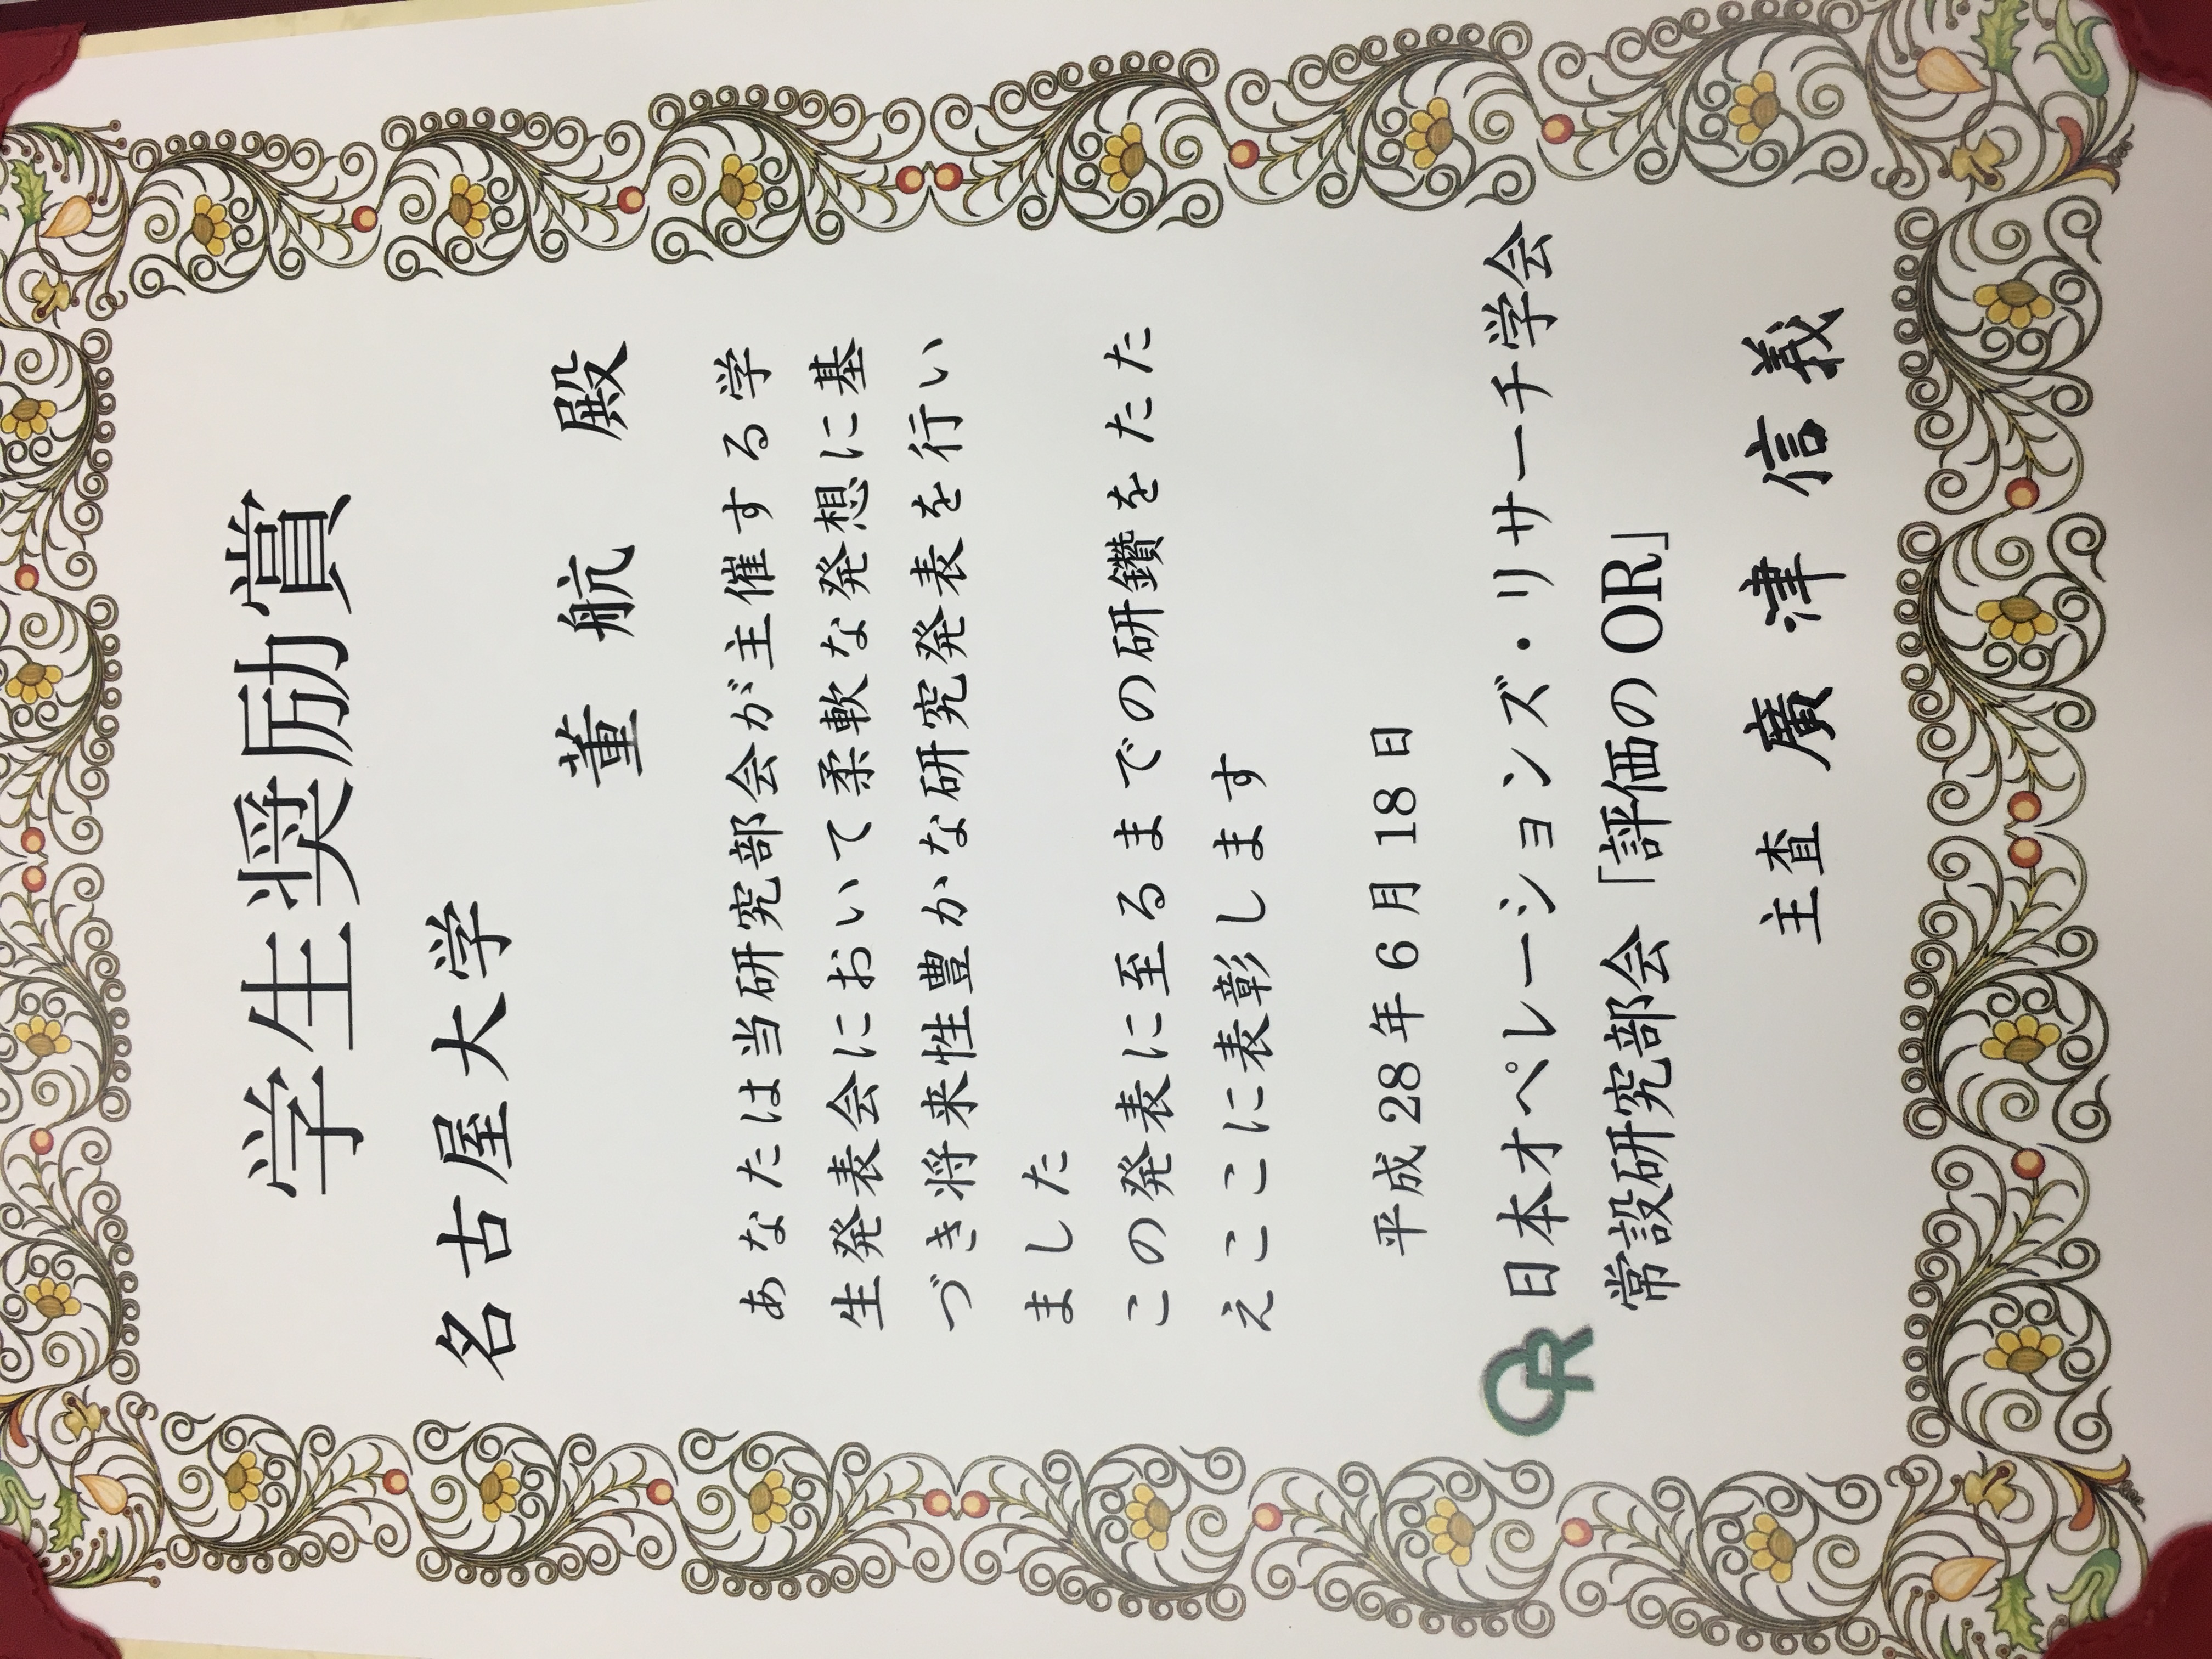 学生奨励賞
名古屋大学
董 航 殿
あなたは当研究部会が主催する学
生発表会において柔軟な発想に基
づき将来性豊かな研究発表を行い
ました
この発表に至るまでの研鑽をたた
えここに表彰します
平成 28 年 6 月 18 日
OR 日本オペレーションズ・リサーチ学会
常設研究部会「評価の OR」
主査 廣津信義